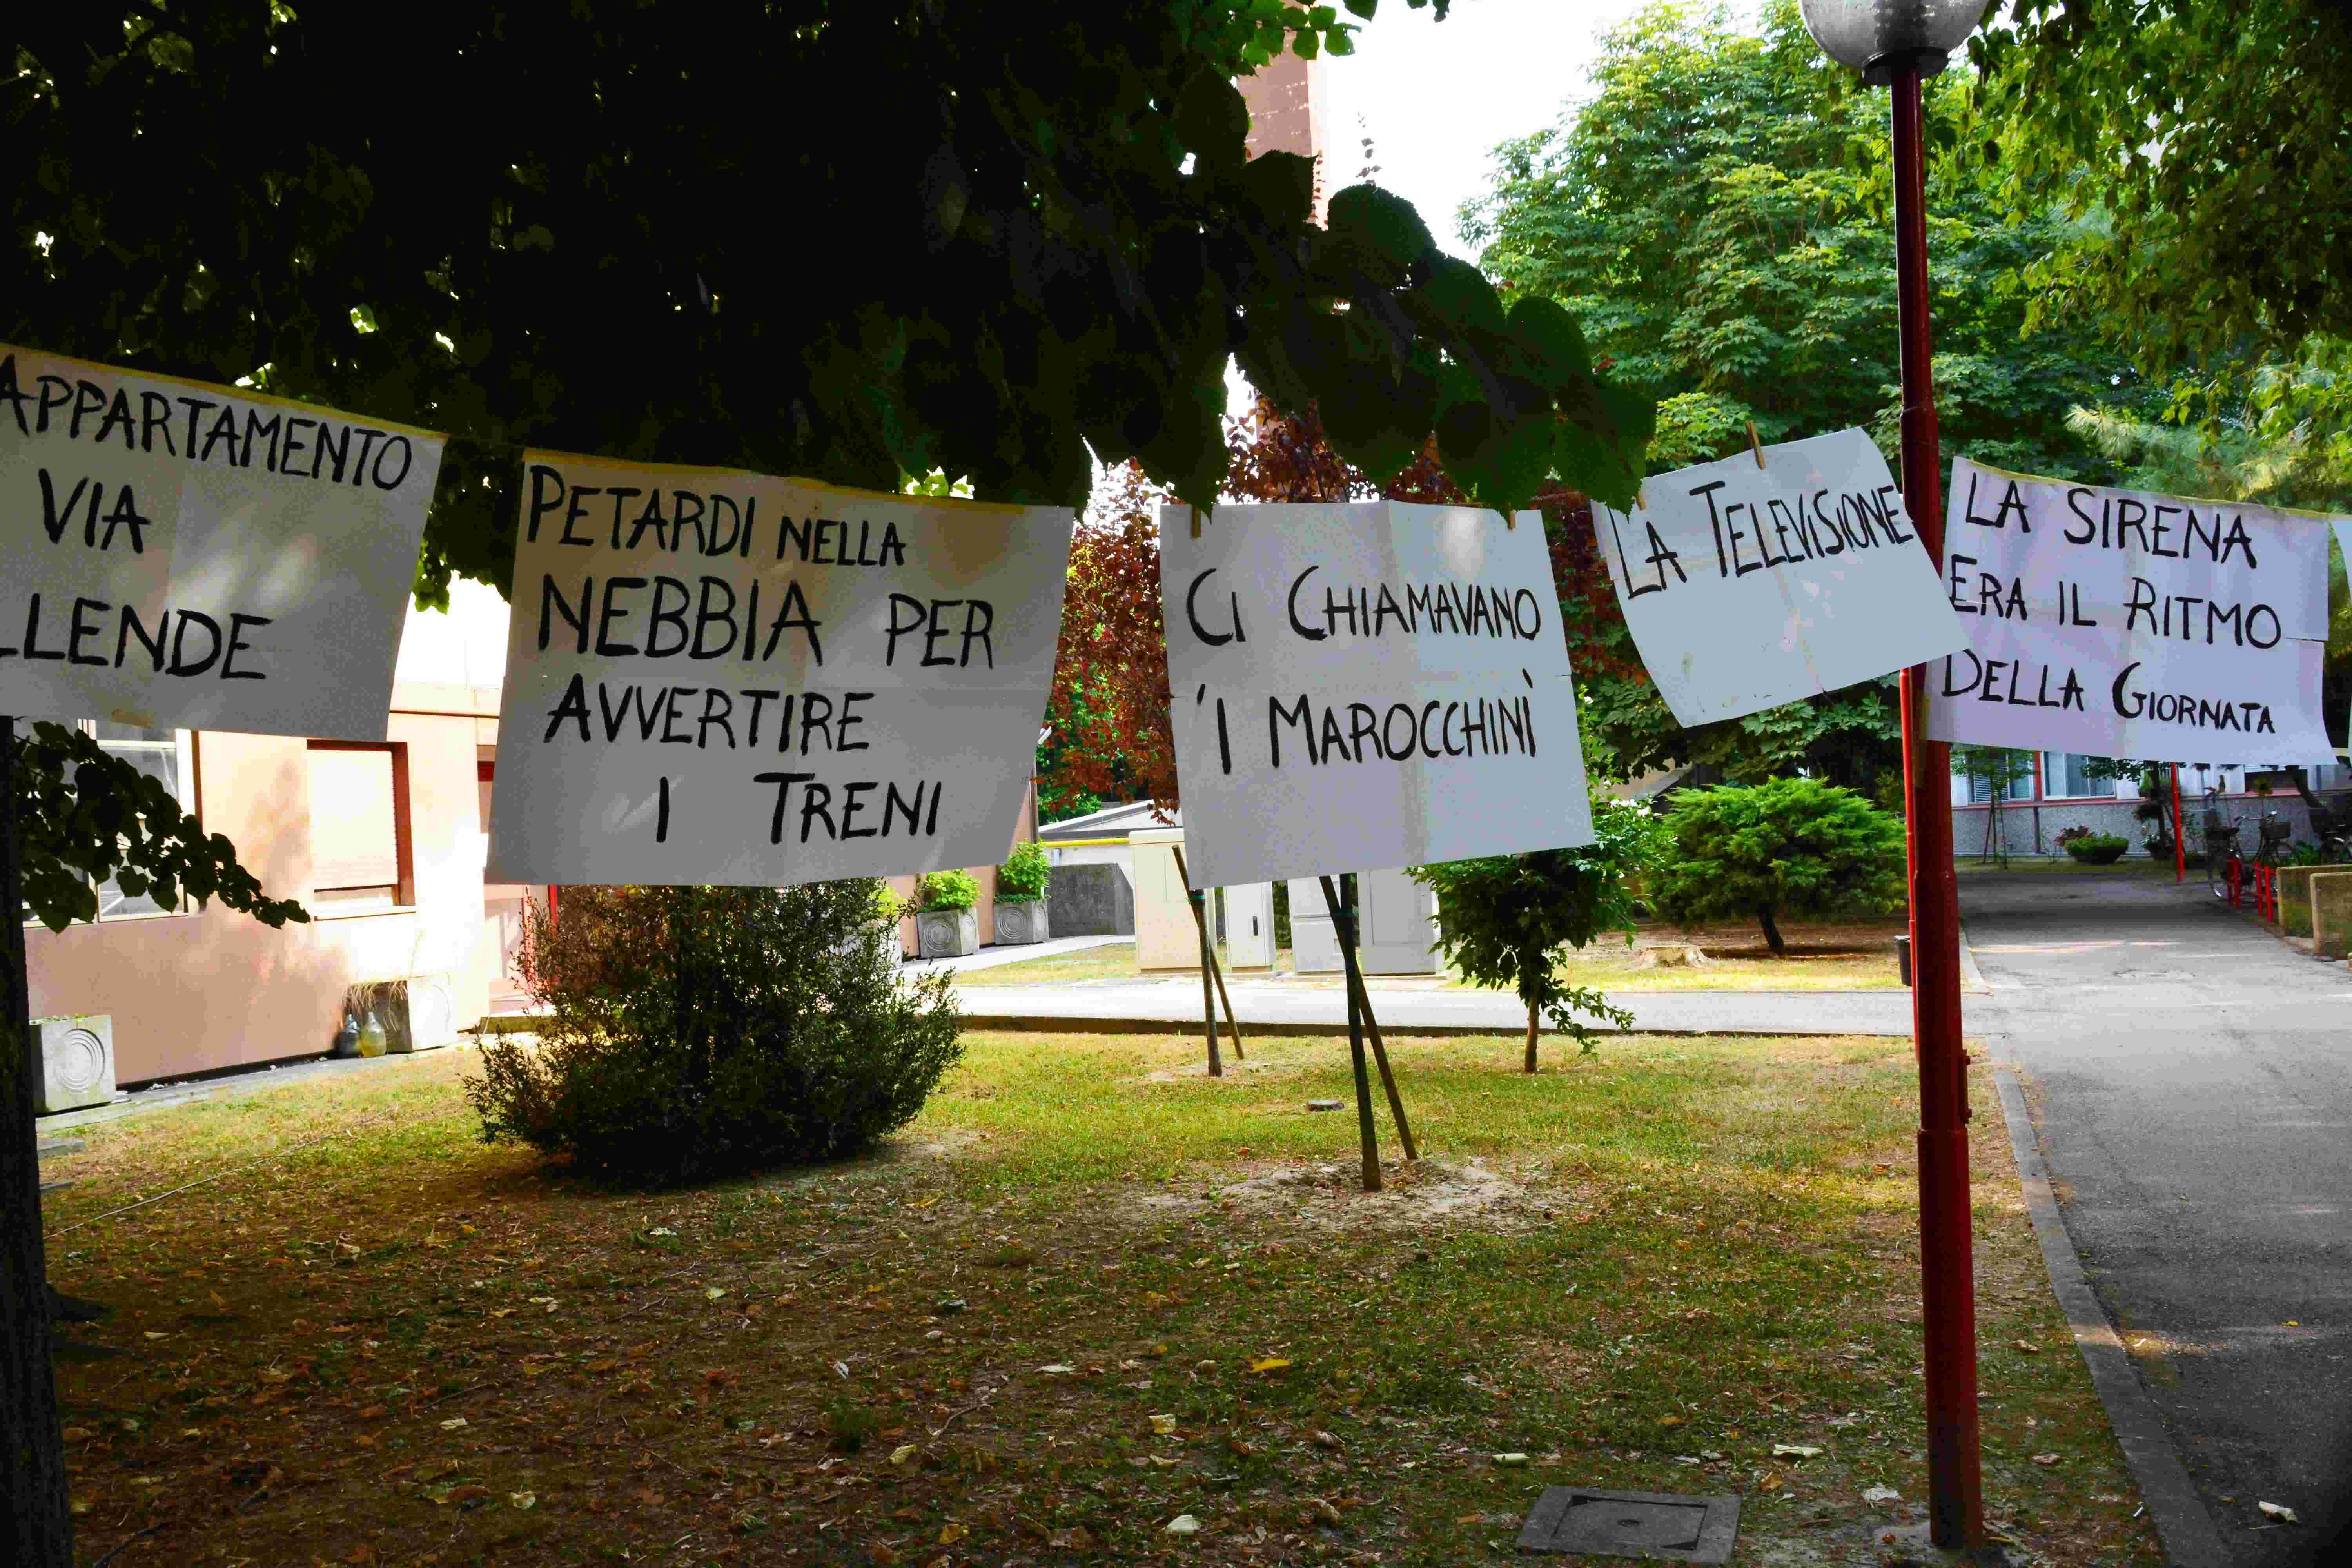 APPARTAMENTO
VIA
LLENDE
PETARDI NELLA
NEBBIA PER
AVVERTIRE
I TRENI
CI CHIAMAVANO
'I MAROCCHINI'
LA TELEVISIONE
LA SIRENA
ERA IL RITMO
DELLA GIORNATA